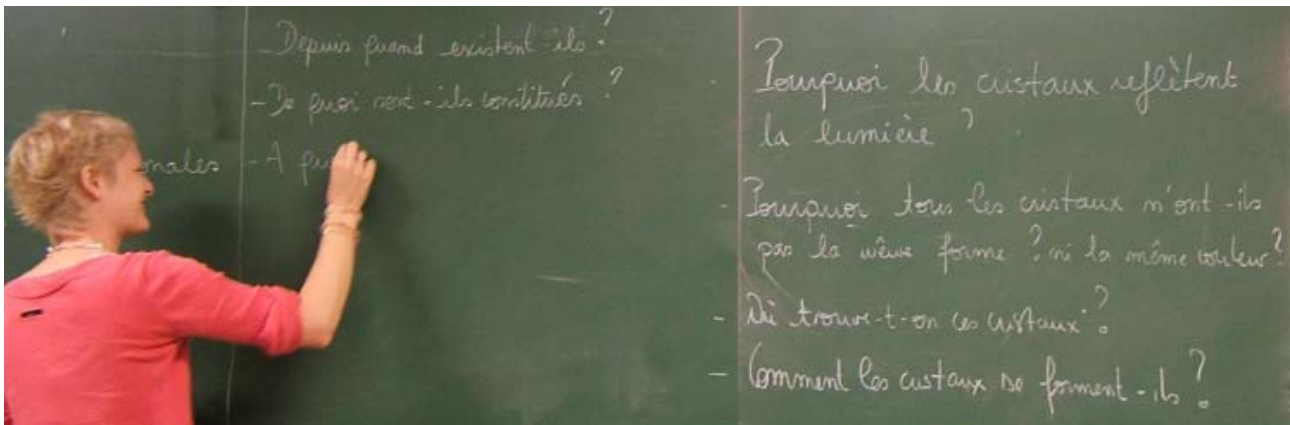 - Depuis quand existent-ils ?
- De quoi sont-ils constitués ?
- A
Pourquoi les cristaux reflètent
la lumière ?
- Pourquoi tous les cristaux n'ont-ils
pas la même forme ? ni la même couleur ?
- Où trouve-t-on ces cristaux ?
- Comment les cristaux se forment-ils ?